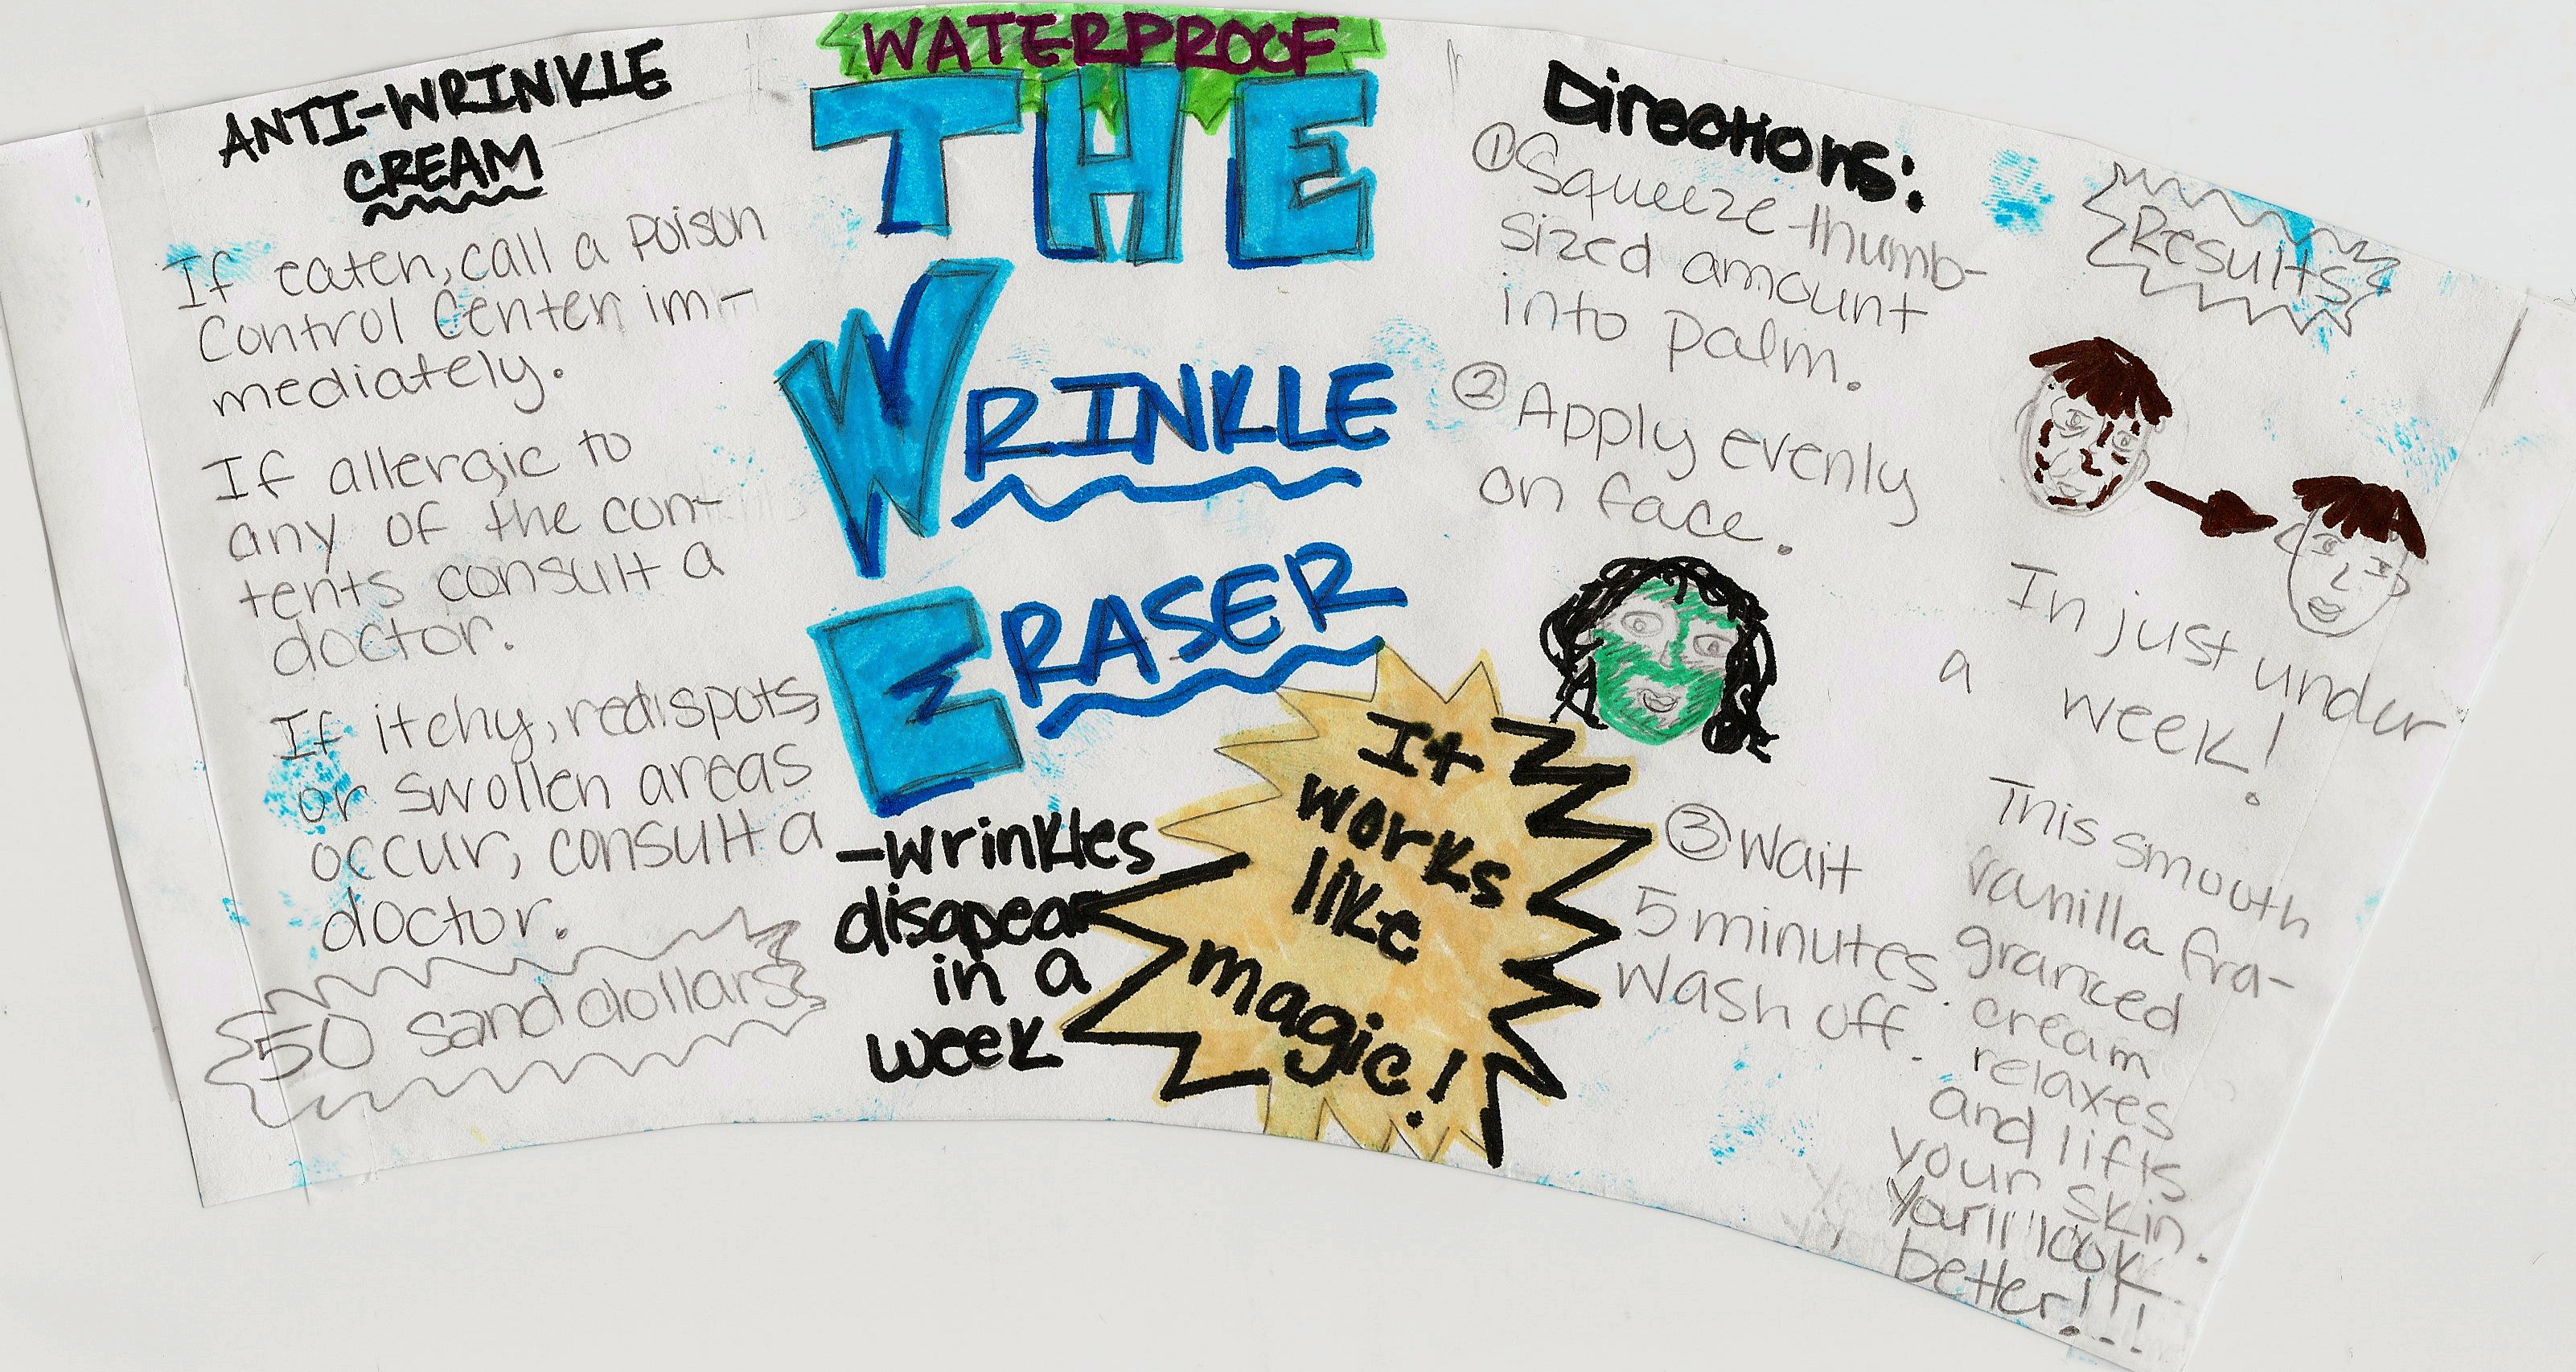 ANTI-WRINKLE
CREAM
If eaten, call a Poison
Control Center im-
mediately.
If allergic to
any of the con-
tents consult a
doctor.
If itchy, red spots,
or swollen areas
occur, consult a
doctor.
50 sand dollars
WATERPROOF
THE
WRINKLE
ERASER
-wrinkles
disapear
in a
week
It
works
like
magic!
Directions:
① Squeeze thumb-
sized amount
into palm.
② Apply evenly
on face.
③ Wait
5 minutes.
Wash off.
Results
In just under
a week!
This smooth
vanilla fra-
granced
cream
relaxes
and lifts
your skin.
You'll look
better!!!